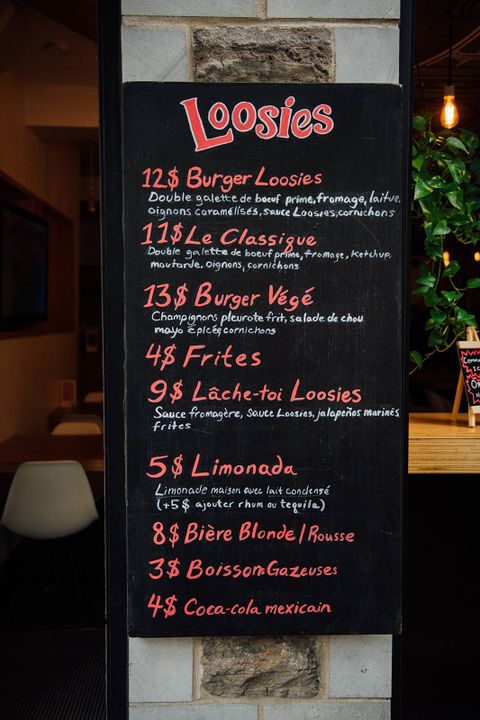 Loosies
12$ Burger Loosies
Double galette de boeuf prime, fromage, laitue,
oignons caramélisés, sauce Loosies, cornichons
11$ Le Classique
Double galette de boeuf prime, fromage, ketchup,
moutarde, oignons, cornichons
13$ Burger Végé
Champignons pleurote frit, salade de chou
mayo épicée, cornichons
4$ Frites
9$ Lâche-toi Loosies
Sauce fromagère, sauce Loosies, jalapeños marinés,
frites
5$ Limonada
Limonade maison avec lait condensé
(+5$ ajouter rhum ou tequila)
8$ Bière Blonde/Rousse
3$ Boissons Gazeuses
4$ Coca-cola mexicain